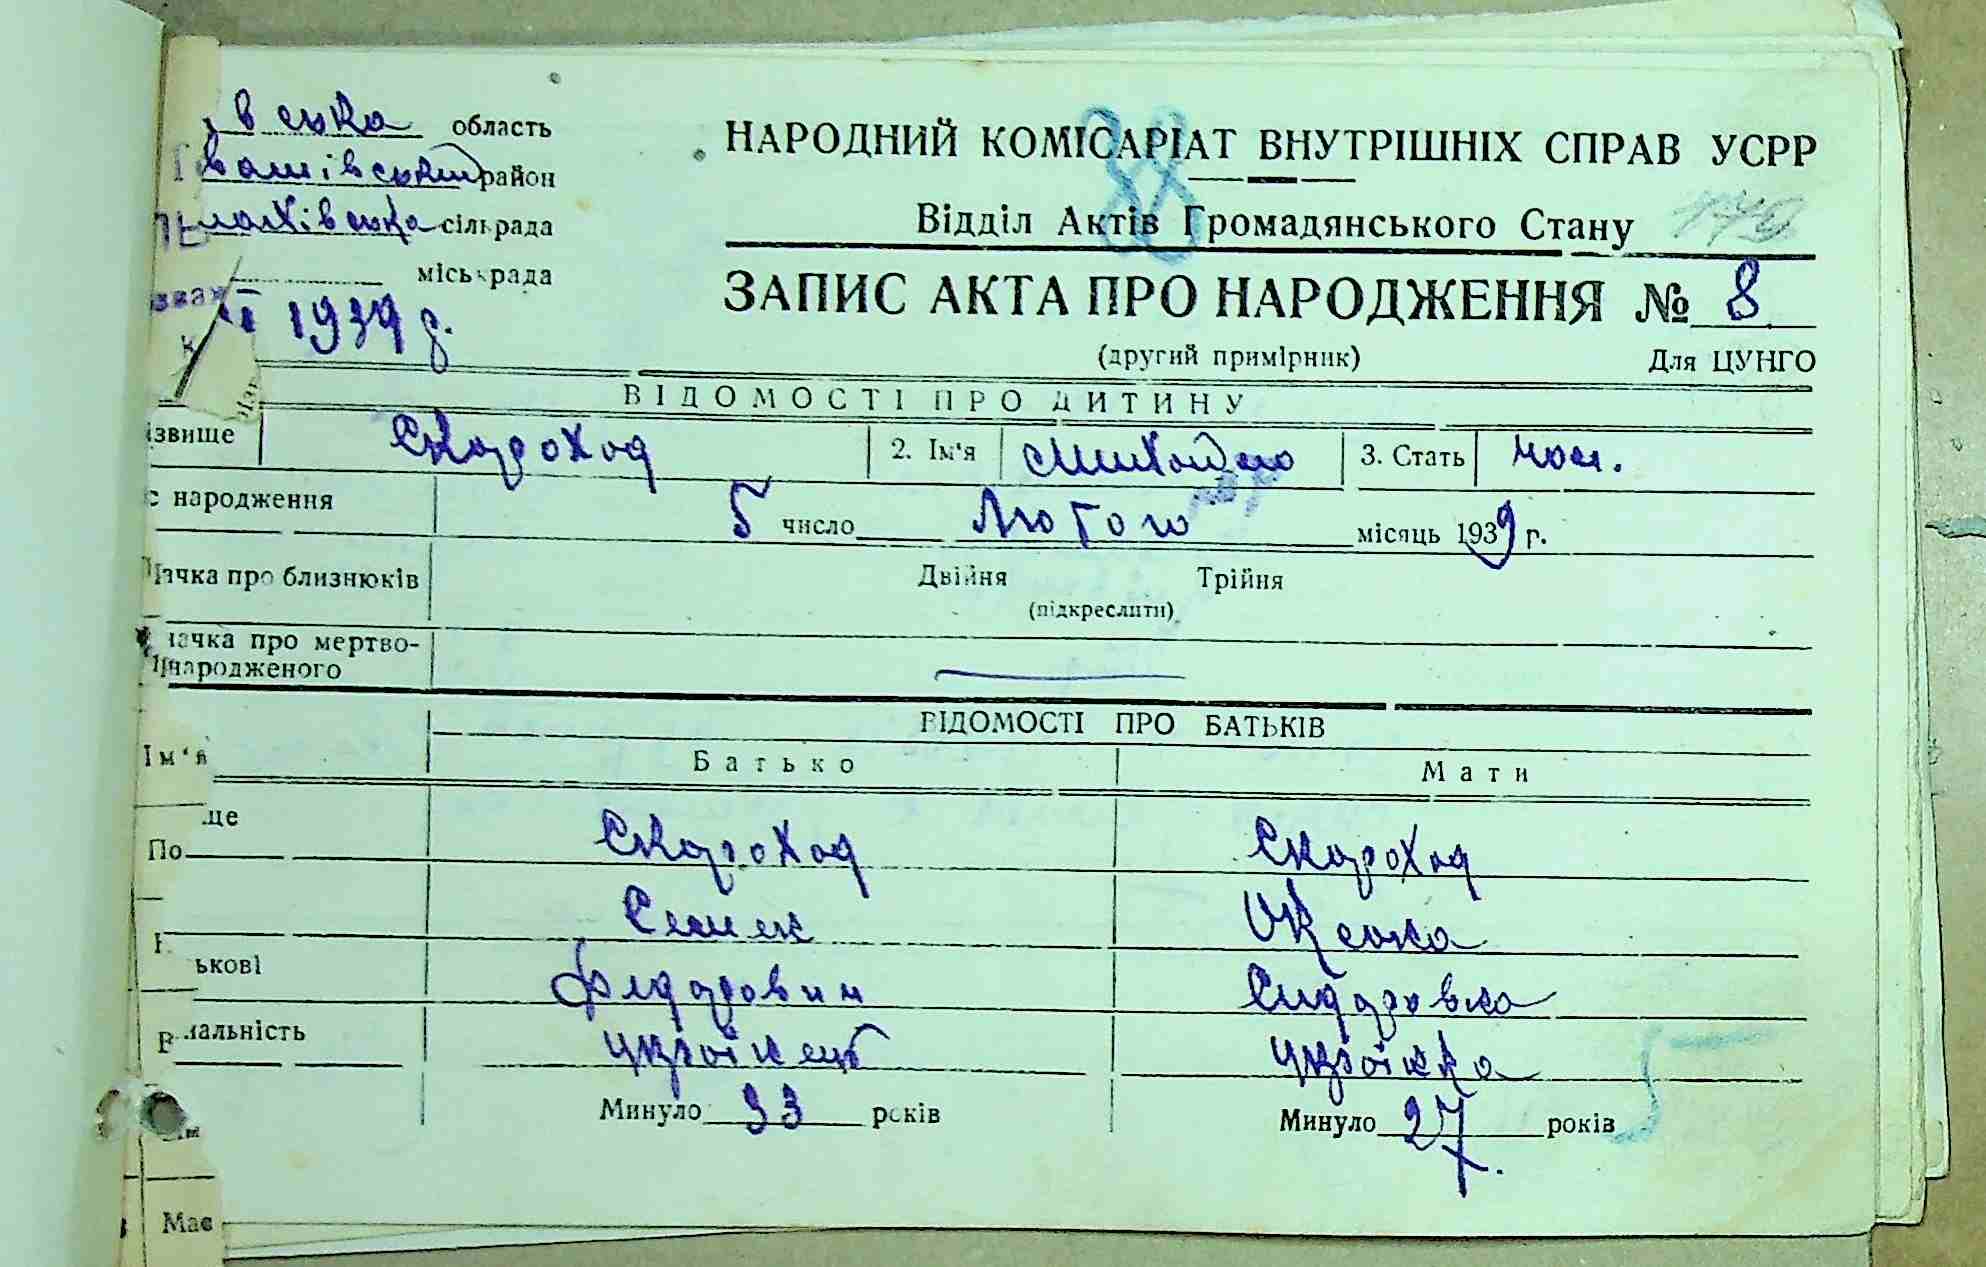 вська область
вашівський район
лахівська сільрада
міськрада
1939 р.
НАРОДНИЙ КОМІСАРІАТ ВНУТРІШНІХ СПРАВ УСРР
88
Відділ Актів Громадянського Стану 179
ЗАПИС АКТА ПРО НАРОДЖЕННЯ № 8
(другий примірник) Для ЦУНГО
ВІДОМОСТІ ПРО ДИТИНУ
ізвище Скороход 2. Ім'я Михайло 3. Стать чол.
с народження 5 число Лютого місяць 1939 р.
ачка про близнюків Двійня Трійня
(підкреслити)
ачка про мертво-
народженого
ВІДОМОСТІ ПРО БАТЬКІВ
Ім'я Батько Мати
ще Скороход Скороход
По
Семен Оксана
ькові Федорович Сидоровна
нальність українець українка
Минуло 33 років Минуло 27 років
5
Має